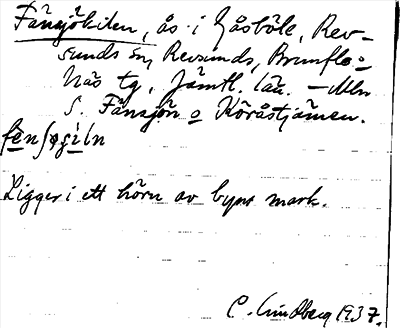 Fänsjökilen, ås i Gåsböle, Rev-
sunds sn, Revsunds, Brunflo o
Näs tg, Jämtl. län. – Mln
s. Fänsjön oKöråstjärnen.
fènʃøgìln
Ligger i ett hörn av byns mark.
C. Lindberg 1937.